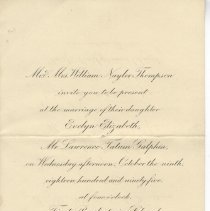 Mr & Mrs William Naylor Thompson
invite you to be present
at the marriage of their daughter
Evelyn Elizabeth,
to
Mr Lawrence Tatum Galphin,
on Wednesday afternoon, October the ninth,
eighteen hundred and ninety five
at four o'clock.